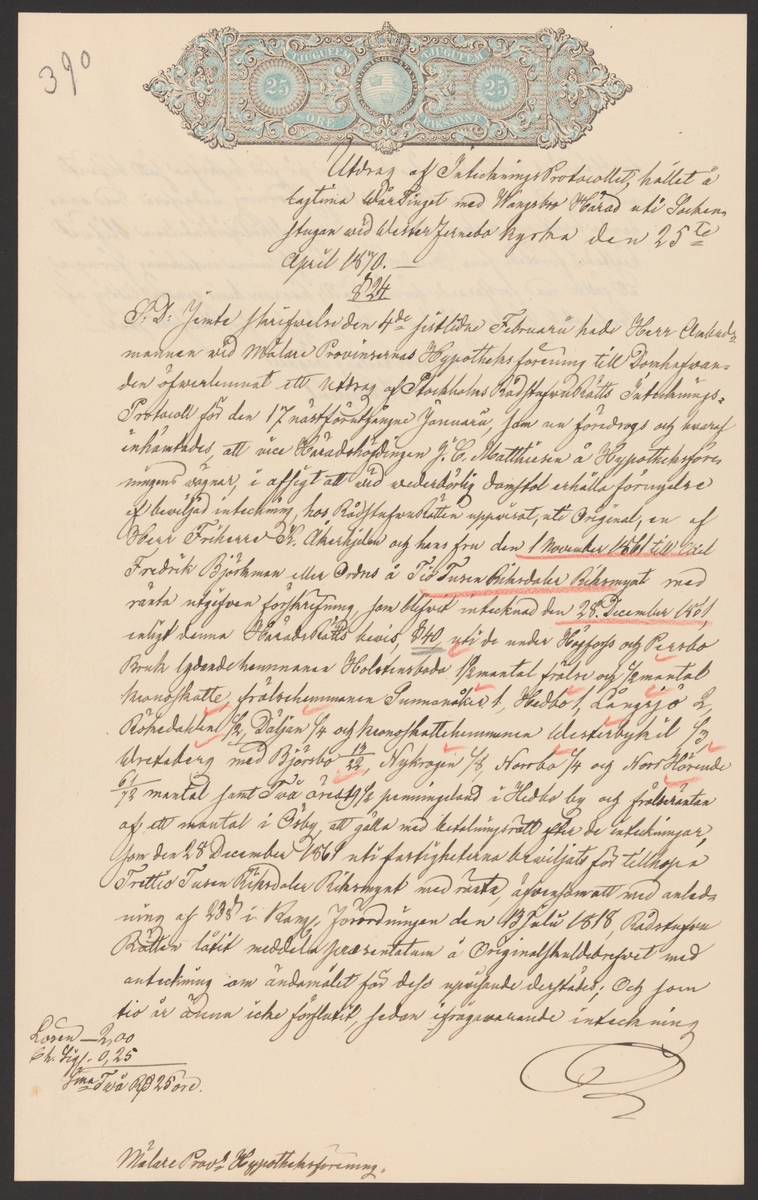 390
TJUGUFEM TJUGUFEM
25 25
ÖRE RIKSMYNT
Utdrag af Intecknings Protocollet, hållet å
lagtima Wår Tinget med Wangsbro Härad uti Socken-
stugan wid Wester Fernebo Kyrka den 25te
April 1870. —
§ 24
S. D. Jemte skrifwelse den 4de sistlidne Februarii hade Herr Ombuds-
mannen wid Mälare Provinsernas Hypotheksförening till Domhafwan-
den öfwerlemnat ett Utdrag af Stockholms Rådstufvu Rätts Intecknings-
Protocoll för den 17 nästförutgångne Januarii, som nu föredrogs och hwaraf
inhämtades, att vice Häradshöfdingen J. C. Matthiesen å Hypotheksföre-
ningens wägnar, i afsigt att wid wederbörlig domstol erhålla förnyelse
af beviljad inteckning, hos Rådstufvu Rätten uppvisat, uti Original, en af
Herr Friherre K. Åkerhjelm och hans fru den 1 November 1861 till Axel
Fredrik Björkman eller Ordres å Tio Tusen Riksdaler Riksmynt med
ränta utgifven förskrifning, som blifvit intecknad den 28 December 1861,
enligt denna HäradsRätts bewis, § 40 uti de under Högfors och Persbo
Bruk lydande hemmanen Holstensboda 1/2 mantal frälse och 1/2 mantal
kronoskatte, frälsehemmanen Sunnanåker 1, Hedbo 1, Långsjö 2,
Rökedahlen 1/2, Däljan 1/4 och kronoskattehemmanen Westerbykil 1/3
Wreteberg med Björsbo 13/22, Nykrogen 1/8, Norrbo 1/4 och Norr Hörende
61/72 mantal samt Två öres 19 1/2 penningeland i Hedbo by och frälseräntan
af ett mantal i Ösby, att gälla med betalningsrätt efter de inteckningar,
som den 28 December 1861 uti fastigheterna beviljats för tillhopa
Trettio Tusen Riksdaler Riksmynt med ränta, äfvensom att med anled-
ning af 28§ i Kongl. Förordningen den 13 Julii 1818 Rådstufvu
Rätten låtit meddela præsentatum å Originalskuldebrefvet med
anteckning om ändamålet för dess uppvisande derstädes; Och som
tio år ännu icke förflutit, sedan ifrågavarande inteckning
Lösen — 2,00
Ch. Sig. 0,25
Sma Två Rd 25 öre.
Mälare Provs Hypotheksförening.